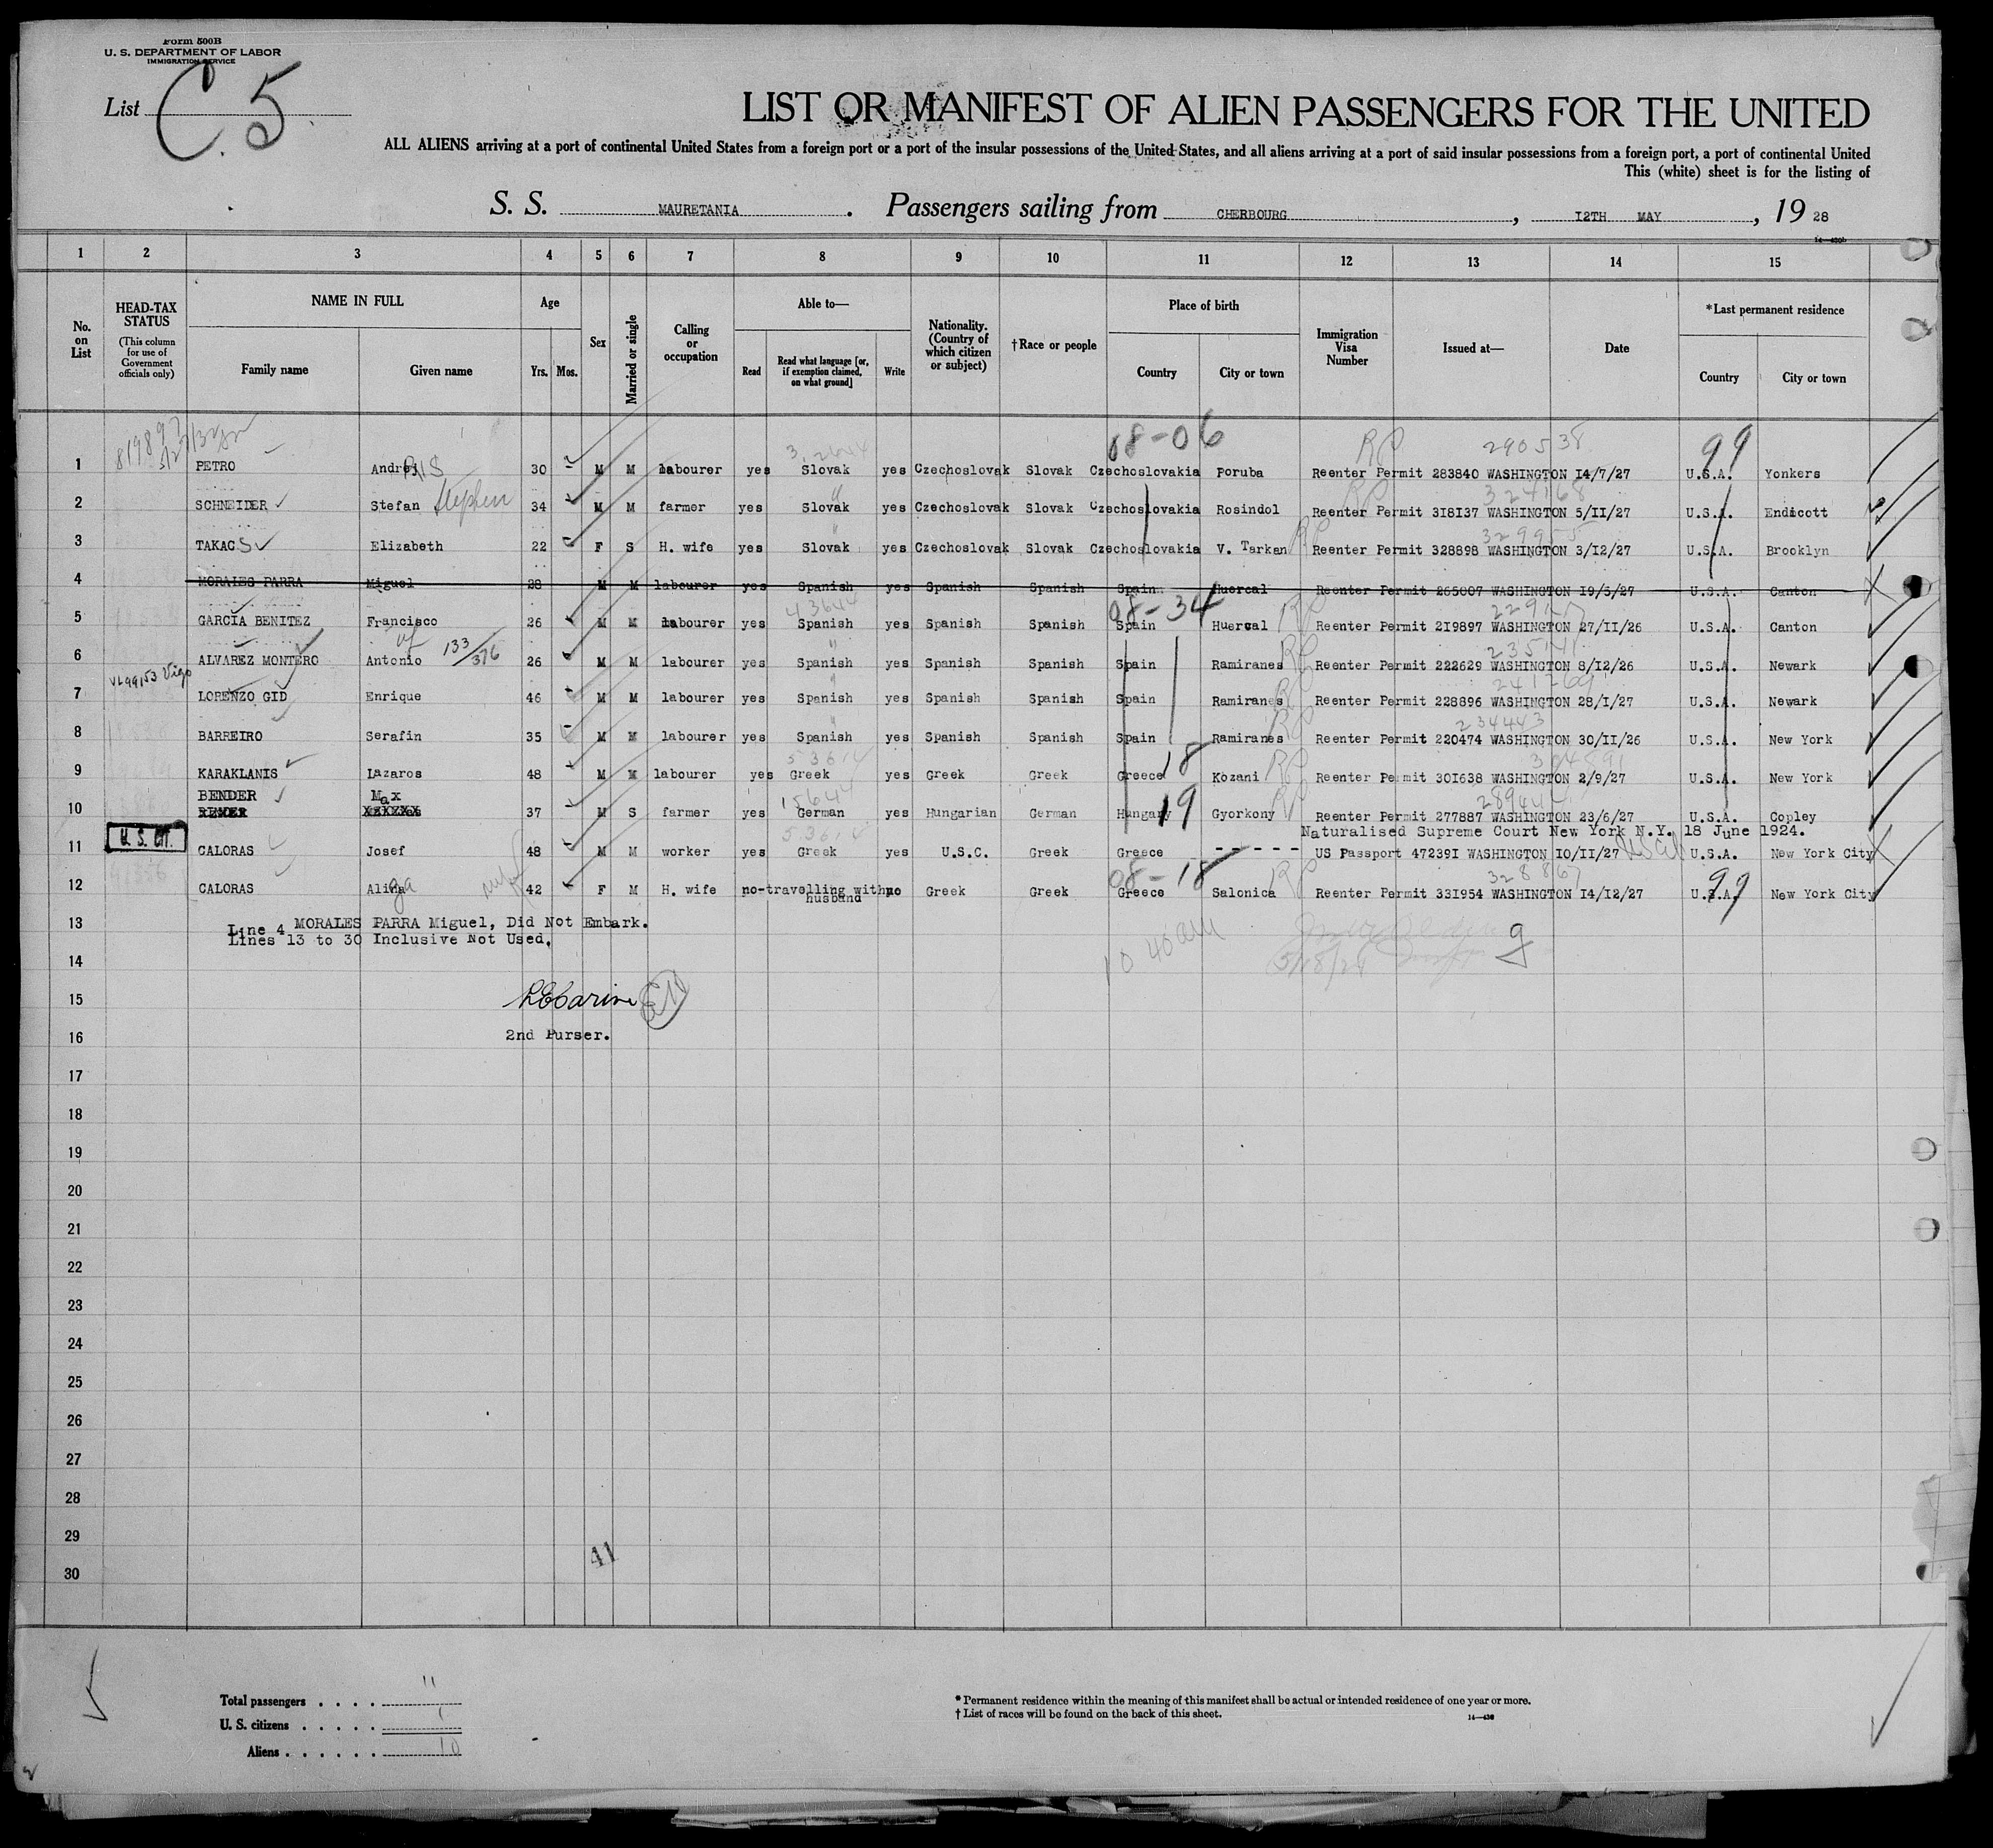 Form 500B
U. S. DEPARTMENT OF LABOR
IMMIGRATION SERVICE
List C 5
LIST OR MANIFEST OF ALIEN PASSENGERS FOR THE UNITED
ALL ALIENS arriving at a port of continental United States from a foreign port or a port of the insular possessions of the United States, and all aliens arriving at a port of said insular possessions from a foreign port, a port of continental United
This (white) sheet is for the listing of
S. S. MAURETANIA . Passengers sailing from CHERBOURG , I2TH MAY , 19 28
1 2 3 4 5 6 7 8 9 10 11 12 13 14 15
No. on List
HEAD-TAX STATUS (This column for use of Government officials only)
NAME IN FULL
Family name Given name
Age
Yrs. Mos.
Sex
Married or single
Calling or occupation
Able to—
Read
Read what language [or, if exemption claimed, on what ground]
Write
Nationality. (Country of which citizen or subject)
†Race or people
Place of birth
Country City or town
Immigration Visa Number
Issued at—
Date
*Last permanent residence
Country City or town
08-06 RP 290538 99
1 PETRO Andrej 30 M M labourer yes Slovak yes Czechoslovak Slovak Czechoslovakia Poruba Reenter Permit 283840 WASHINGTON I4/7/27 U.S.A. Yonkers
2 SCHNEIDER Stefan Stephen 34 M M farmer yes Slovak yes Czechoslovak Slovak Czechoslovakia Rosindol Reenter Permit 3I8I37 WASHINGTON 5/II/27 U.S.A. Endicott
3 TAKACS Elizabeth 22 F S H. wife yes Slovak yes Czechoslovak Slovak Czechoslovakia V. Tarkan Reenter Permit 328898 WASHINGTON 3/I2/27 U.S.A. Brooklyn
4 MORALES PARRA Miguel 28 M M labourer yes Spanish yes Spanish Spanish Spain Huercal Reenter Permit 265007 WASHINGTON I9/5/27 U.S.A. Canton
08-34 RP
5 GARCIA BENITEZ Francisco 26 M M labourer yes Spanish yes Spanish Spanish Spain Huercal Reenter Permit 2I9897 WASHINGTON 27/II/26 U.S.A. Canton
133/376 RP
6 ALVAREZ MONTERO Antonio 26 M M labourer yes Spanish yes Spanish Spanish Spain Ramiranes Reenter Permit 222629 WASHINGTON 8/I2/26 U.S.A. Newark
7 LORENZO GID Enrique 46 M M labourer yes Spanish yes Spanish Spanish Spain Ramiranes Reenter Permit 228896 WASHINGTON 28/I/27 U.S.A. Newark
RP 234443
8 BARREIRO Serafin 35 M M labourer yes Spanish yes Spanish Spanish Spain Ramiranes Reenter Permit 220474 WASHINGTON 30/II/26 U.S.A. New York
18 RP
9 KARAKLANIS Lazaros 48 M M labourer yes Greek yes Greek Greek Greece Kozani Reenter Permit 30I638 WASHINGTON 2/9/27 U.S.A. New York
BENDER Max
10 37 M S farmer yes German yes Hungarian German Hungary 19 Gyorkony Reenter Permit 277887 WASHINGTON 23/6/27 U.S.A. Copley
Naturalised Supreme Court New York N.Y. I8 June I924.
U. S. CIT.
11 CALORAS Josef 48 M M worker yes Greek yes U.S.C. Greek Greece - - - - - US Passport 47239I WASHINGTON IO/II/27 U.S.A. New York City
08-18 RP 99
12 CALORAS Alina 42 F M H. wife no-travelling with husband no Greek Greek Greece Salonica Reenter Permit 33I954 WASHINGTON I4/I2/27 U.S.A. New York City
13 Line 4 MORALES PARRA Miguel, Did Not Embark.
Lines 13 to 30 Inclusive Not Used.
14 10 40 am
15
16 2nd Purser.
17
18
19
20
21
22
23
24
25
26
27
28
29
41
30
Total passengers . . . . 11
U. S. citizens . . . . . 1
Aliens . . . . . . 10
* Permanent residence within the meaning of this manifest shall be actual or intended residence of one year or more.
† List of races will be found on the back of this sheet.
14—430